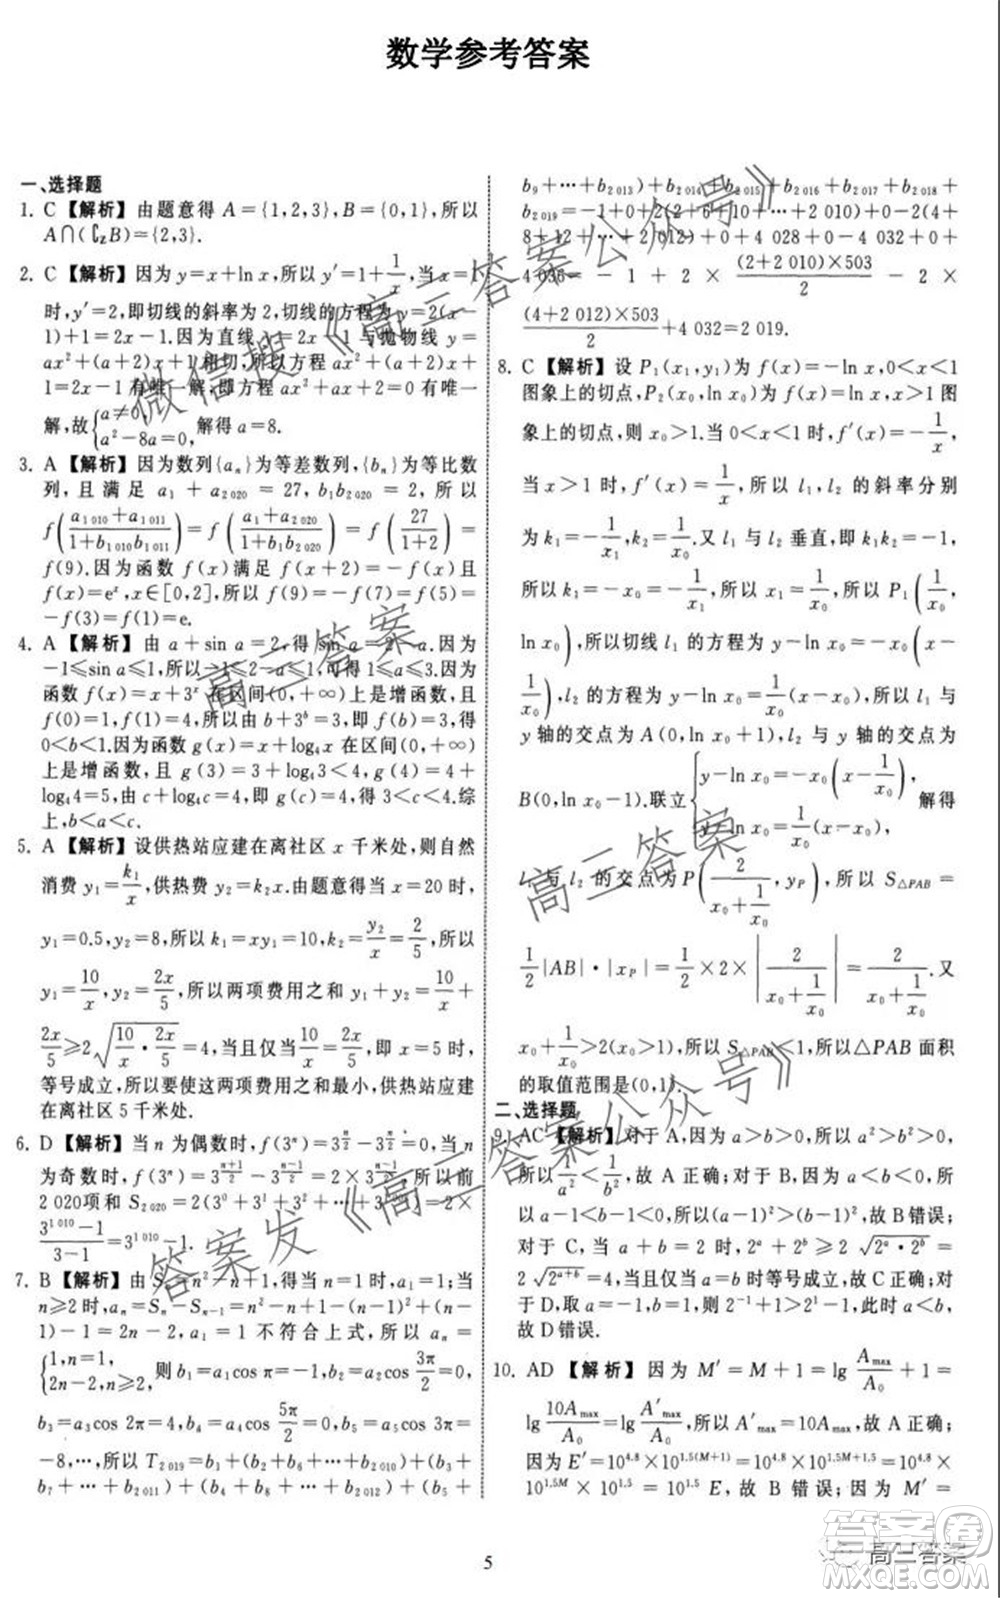 数学参考答案
一、选择题
1. C【解析】由题意得 A={1,2,3},B={0,1},所以
A∩(∁ZB)={2,3}.
2. C【解析】因为 y=x+ln x,所以 y′=1+1/x,当 x=1
时,y′=2,即切线的斜率为 2,切线的方程为 y=2(x-
1)+1=2x-1.因为直线 y=2x-1 与抛物线 y=
ax²+(a+2)x+1 相切,所以方程 ax²+(a+2)x+
1=2x-1 有唯一解,即方程 ax²+ax+2=0 有唯一
解,故{a≠0, a²-8a=0, 解得 a=8.
3. A【解析】因为数列{aₙ}为等差数列,{bₙ}为等比数
列,且满足 a₁+a₂₀₂₀=27,b₁b₂₀₂₀=2,所以
f((a₁₀₁₀+a₁₀₁₁)/(1+b₁₀₁₀b₁₀₁₁))=f((a₁+a₂₀₂₀)/(1+b₁b₂₀₂₀))=f(27/(1+2))=
f(9).因为函数 f(x)满足 f(x)=f(x-2)且
f(x)=eˣ,x∈[0,2],所以 f(9)=f(7)=f(5)=
f(3)=f(1)=e.
4. A【解析】由 a+sin a=2,得 sin a=2-a.因为
-1≤sin a≤1,所以-1≤2-a≤1,可得 1≤a≤3.因为
函数 f(x)=x+3ˣ 在区间(0,+∞)上是增函数,且
f(0)=1,f(1)=4,所以由 b+3ᵇ=3,即 f(b)=3,得
0<b<1.因为函数 g(x)=x+log₄x 在区间(0,+∞)
上是增函数,且 g(3)=3+log₄3<4,g(4)=4+
log₄4=5,由 c+log₄c=4,即 g(c)=4,得 3<c<4.综
上,b<a<c.
5. A【解析】设供热站应建在离社区 x 千米处,则自然
消费 y₁=k₁/x,供热费 y₂=k₂x.由题意得当 x=20 时,
y₁=0.5,y₂=8,所以 k₁=xy₁=10,k₂=y₂/x=2/5,所以
y₁=10/x,y₂=2x/5,所以两项费用之和 y₁+y₂=10/x+
2x/5≥2√(10/x·2x/5)=4,当且仅当10/x=2x/5,即 x=5 时,
等号成立,所以要使这两项费用之和最小,供热站应建
在离社区 5 千米处.
6. D【解析】当 n 为偶数时,f(3ⁿ)=3^(n/2)-3^(n/2)=0,当 n
为奇数时,f(3ⁿ)=3^((n+1)/2)-3^((n-1)/2)=2×3^((n-1)/2),所以前
2 020项和 S₂₀₂₀=2(3⁰+3¹+3²+…+3¹⁰⁰⁹)=2×
(3¹⁰¹⁰-1)/(3-1)=3¹⁰¹⁰-1.
7. B【解析】由 Sₙ=n²-n+1,得当 n=1 时,a₁=1;当
n≥2 时,aₙ=Sₙ-Sₙ₋₁=2n-2,a₁=1 不符合上式,所以 aₙ=
{1,n=1 2n-2,n≥2, 则 b₁=a₁cos π=-1,b₂=a₂cos 3π/2=0,
b₃=a₃cos 2π=4,b₄=a₄cos 5π/2=0,b₅=a₅cos 3π=
-8,…,所以 T₂₀₁₉=(b₁+b₅+…+b₂₀₁₇)+(b₂+
b₆+…+b₂₀₁₈)+(b₃+b₇+…+b₂₀₁₉)+(b₄+
b₉+…+b₂₀₁₃)+(b₃+b₇+…+b₂₀₁₅+b₂₀₁₇+b₂₀₁₈+
b₂₀₁₉=-1+0+2(2+6+…+2 010)-2(4+
8+12+…+2 012)+0+4 028+0-4 032+0+
4 036=-1+2×((2+2 010)×503)/2-2×
((4+2 012)×503)/2+4 032=2 019.
8. C【解析】设 P₁(x₁,y₁)为 f(x)=-ln x,0<x<1
图象上的切点,P₂(x₀,ln x₀)为 f(x)=ln x,x>1 图
象上的切点,则 x₀>1.当 0<x<1 时,f′(x)=-1/x,
当 x>1 时,f′(x)=1/x,所以 l₁,l₂ 的斜率分别
为 k₁=-1/x₁,k₂=1/x₀.又 l₁ 与 l₂ 垂直,即 k₁k₂=-1,
所以 k₁=-1/x₁=-x₀,所以 x₁=1/x₀,所以 P₁(1/x₀,
ln x₀),所以切线 l₁ 的方程为 y-ln x₀=-x₀(x-
1/x₀),l₂ 的方程为 y-ln x₀=1/x₀(x-x₀),所以 l₁ 与
y 轴的交点为 A(0,ln x₀+1),l₂ 与 y 轴的交点为
B(0,ln x₀-1).联立{y-ln x₀=-x₀(x-1/x₀), y-ln x₀=1/x₀(x-x₀), 解得
l₁ 与 l₂ 的交点为 P(2/(x₀+1/x₀),y_P),所以 S△PAB=
1/2|AB|·|x_P|=1/2×2×|2/(x₀+1/x₀)|=2/(x₀+1/x₀).又
x₀+1/x₀>2(x₀>1),所以 S△PAB<1,所以△PAB 面积
的取值范围是(0,1).
二、选择题
9. AC【解析】对于 A,因为 a>b>0,所以 a²>b²>0,
所以1/a²<1/b²,故 A 正确;对于 B,因为 a<b<0,所
以 a-1<b-1<0,所以(a-1)²>(b-1)²,故 B 错误;
对于 C,当 a+b=2 时,2ᵃ+2ᵇ≥2√(2ᵃ·2ᵇ)=
2√(2ᵃ⁺ᵇ)=4,当且仅当 a=b 时等号成立,故 C 正确;对
于 D,因为取 a=-1,b=1,则 2⁻¹+1>2¹-1,此时 a<b,
故 D 错误.
10. AD【解析】因为 M′=M+1=lg Amax/A₀+1=
lg 10Amax/A₀=lg A′max/A₀,所以 A′max=10Amax,故 A 正确;
因为 E′=10⁴·⁸×10¹·⁵⁽ᴹ⁺¹⁾=10⁴·⁸×10¹·⁵ᴹ⁺¹·⁵=10⁴·⁸×
10¹·⁵ᴹ×10¹·⁵=10¹·⁵E,故 B 错误;因为 M′=
5
微信搜《高三答案公众号》
高三答案
答案发《高三答案公众号》
高三答案
答案圈
MXQE.COM
高三答案